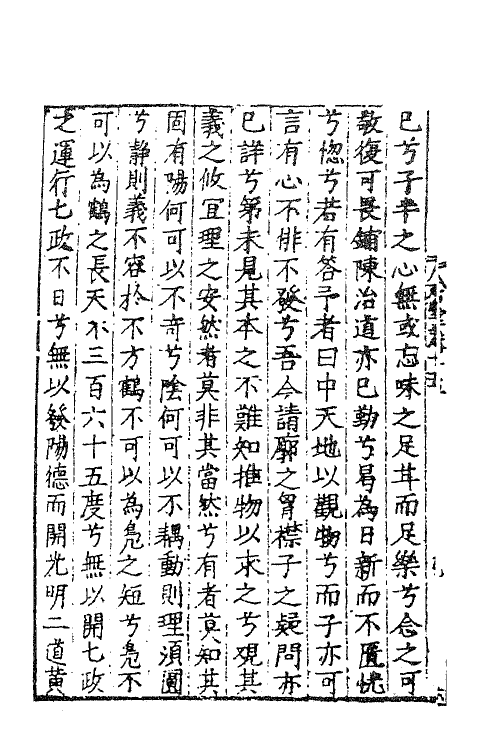 已兮子平之心無或忘味之足其而足樂兮念之可
敬復可畏鋪陳治道亦已勤兮曷為日新而不匱恍
兮惚兮若有答予者曰中天地以觀物兮而子亦可
言有心不悱不發兮吾今請廓之胷襟子之疑問亦
已詳兮第未見其本之不難知推物以求之兮觀其
義之攸宜理之安然者莫非其當然兮有者莫知其
固有陽何可以不奇兮陰何可以不耦動則理須圓
兮靜則義不容於不方鶴不可以為鳧之短兮鳧不
可以為鶴之長天不三百六十五度兮無以開七政
之運行七政不日兮無以發陽德而開光明二道黃